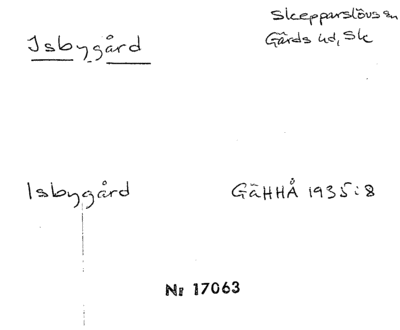 Isbygård
Skepparslövs sn
Gärds hd, Sk
Isbygård
GäHHÅ 1935:8
Nr 17063